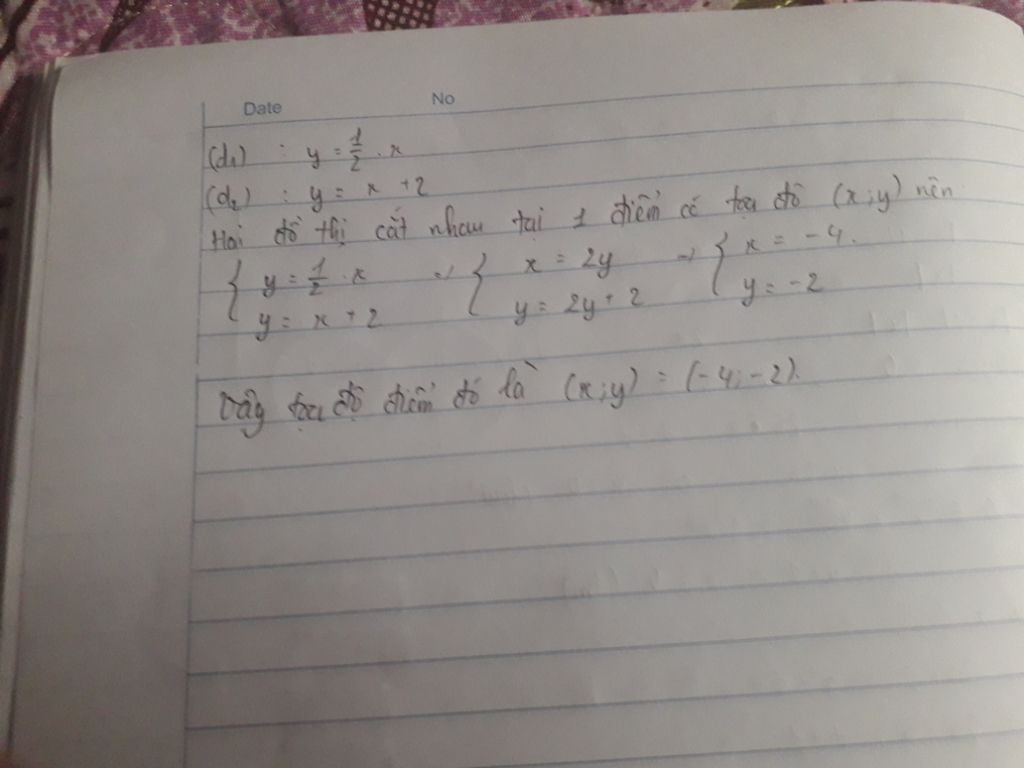 Date No
(d₁) : y = 1/2 . x
(d₂) : y = x + 2
Hai đồ thị cắt nhau tại 1 điểm có tọa độ (x ; y) nên
{ y = 1/2 . x => { x = 2y => { x = -4.
y = x + 2 y = 2y + 2 y = -2
Vậy tọa độ điểm đó là (x ; y) = (-4 ; -2).